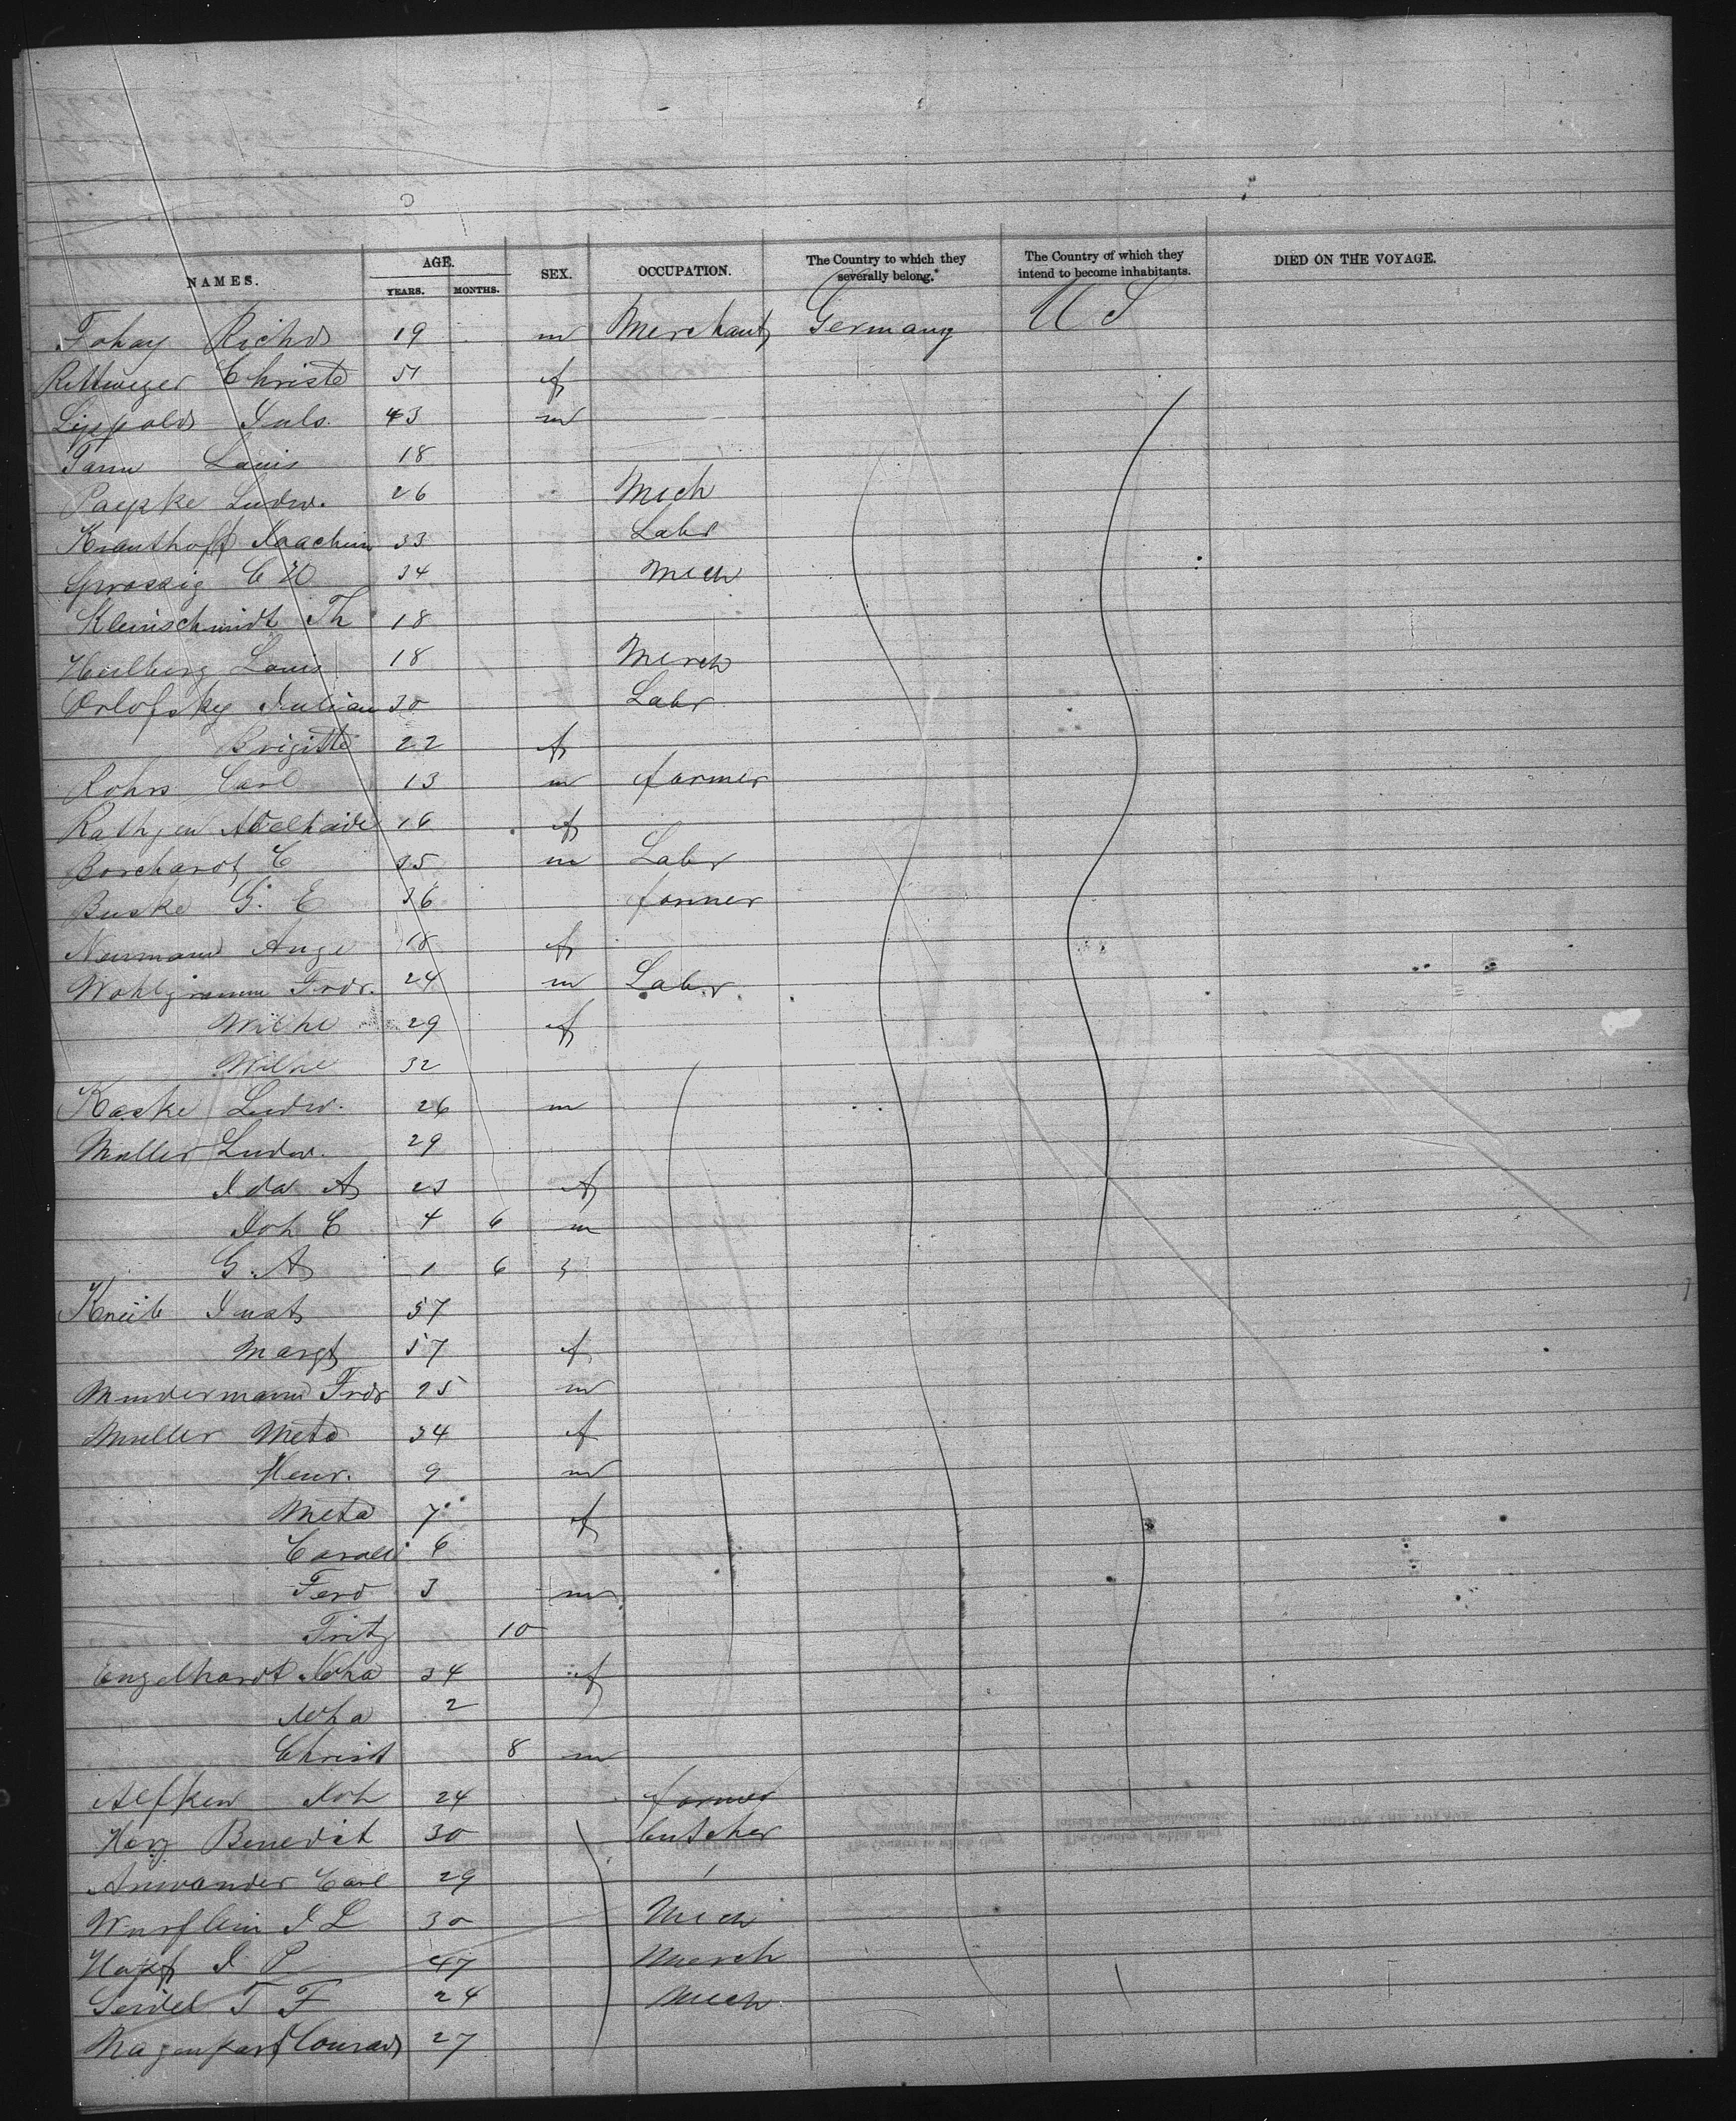 NAMES. AGE. YEARS. MONTHS. SEX. OCCUPATION. The Country to which they severally belong.* The Country of which they intend to become inhabitants. DIED ON THE VOYAGE.
Tohay Richd 19 m Merchant Germany U S
Rettweger Christe 51 f
Lippold Juls. 43 m
Louis 18
Paepke Ludw. 26 Mech
Krauthoff Joachim 33 Labr
Grossig C H 34 Mech
Kleinschmidt Th 18
Heilberg Louis 18 Merch
Orlofsky Julian 30 Labr
Brigitte 22 f
Rohrs Carl 13 m farmer
Rathjen Adelhaide 16 f
Borchardt C 25 m Labr
Buske G. E 36 farmer
Neumann Auge 18 f
Wohlgramm Frdr. 24 m Labr
Wilhe 29 f
Wilhe 32
Kaske Ludw. 26 m
Muller Ludw. 29
Ida A f
Joh C 4 6 m
G. A 1 6
Kneib 57
Margt 57 f
Mindermann Frdr 25 m
Muller Meta 34 f
Henr. 9 m
Meta 7 f
6
Ferd 3 m
Fritz 10
Engelhardt Joha 34 f
Joha 2
Christ 8 m
Alfken Joh 24 farmer
Herz Benedict 30 butcher
Anwander Carl 29
Wurflein J L 30 Mech
Hopf J P 47 Merch
Seidel T F 24 Mech
Magenkarf Conrad 27